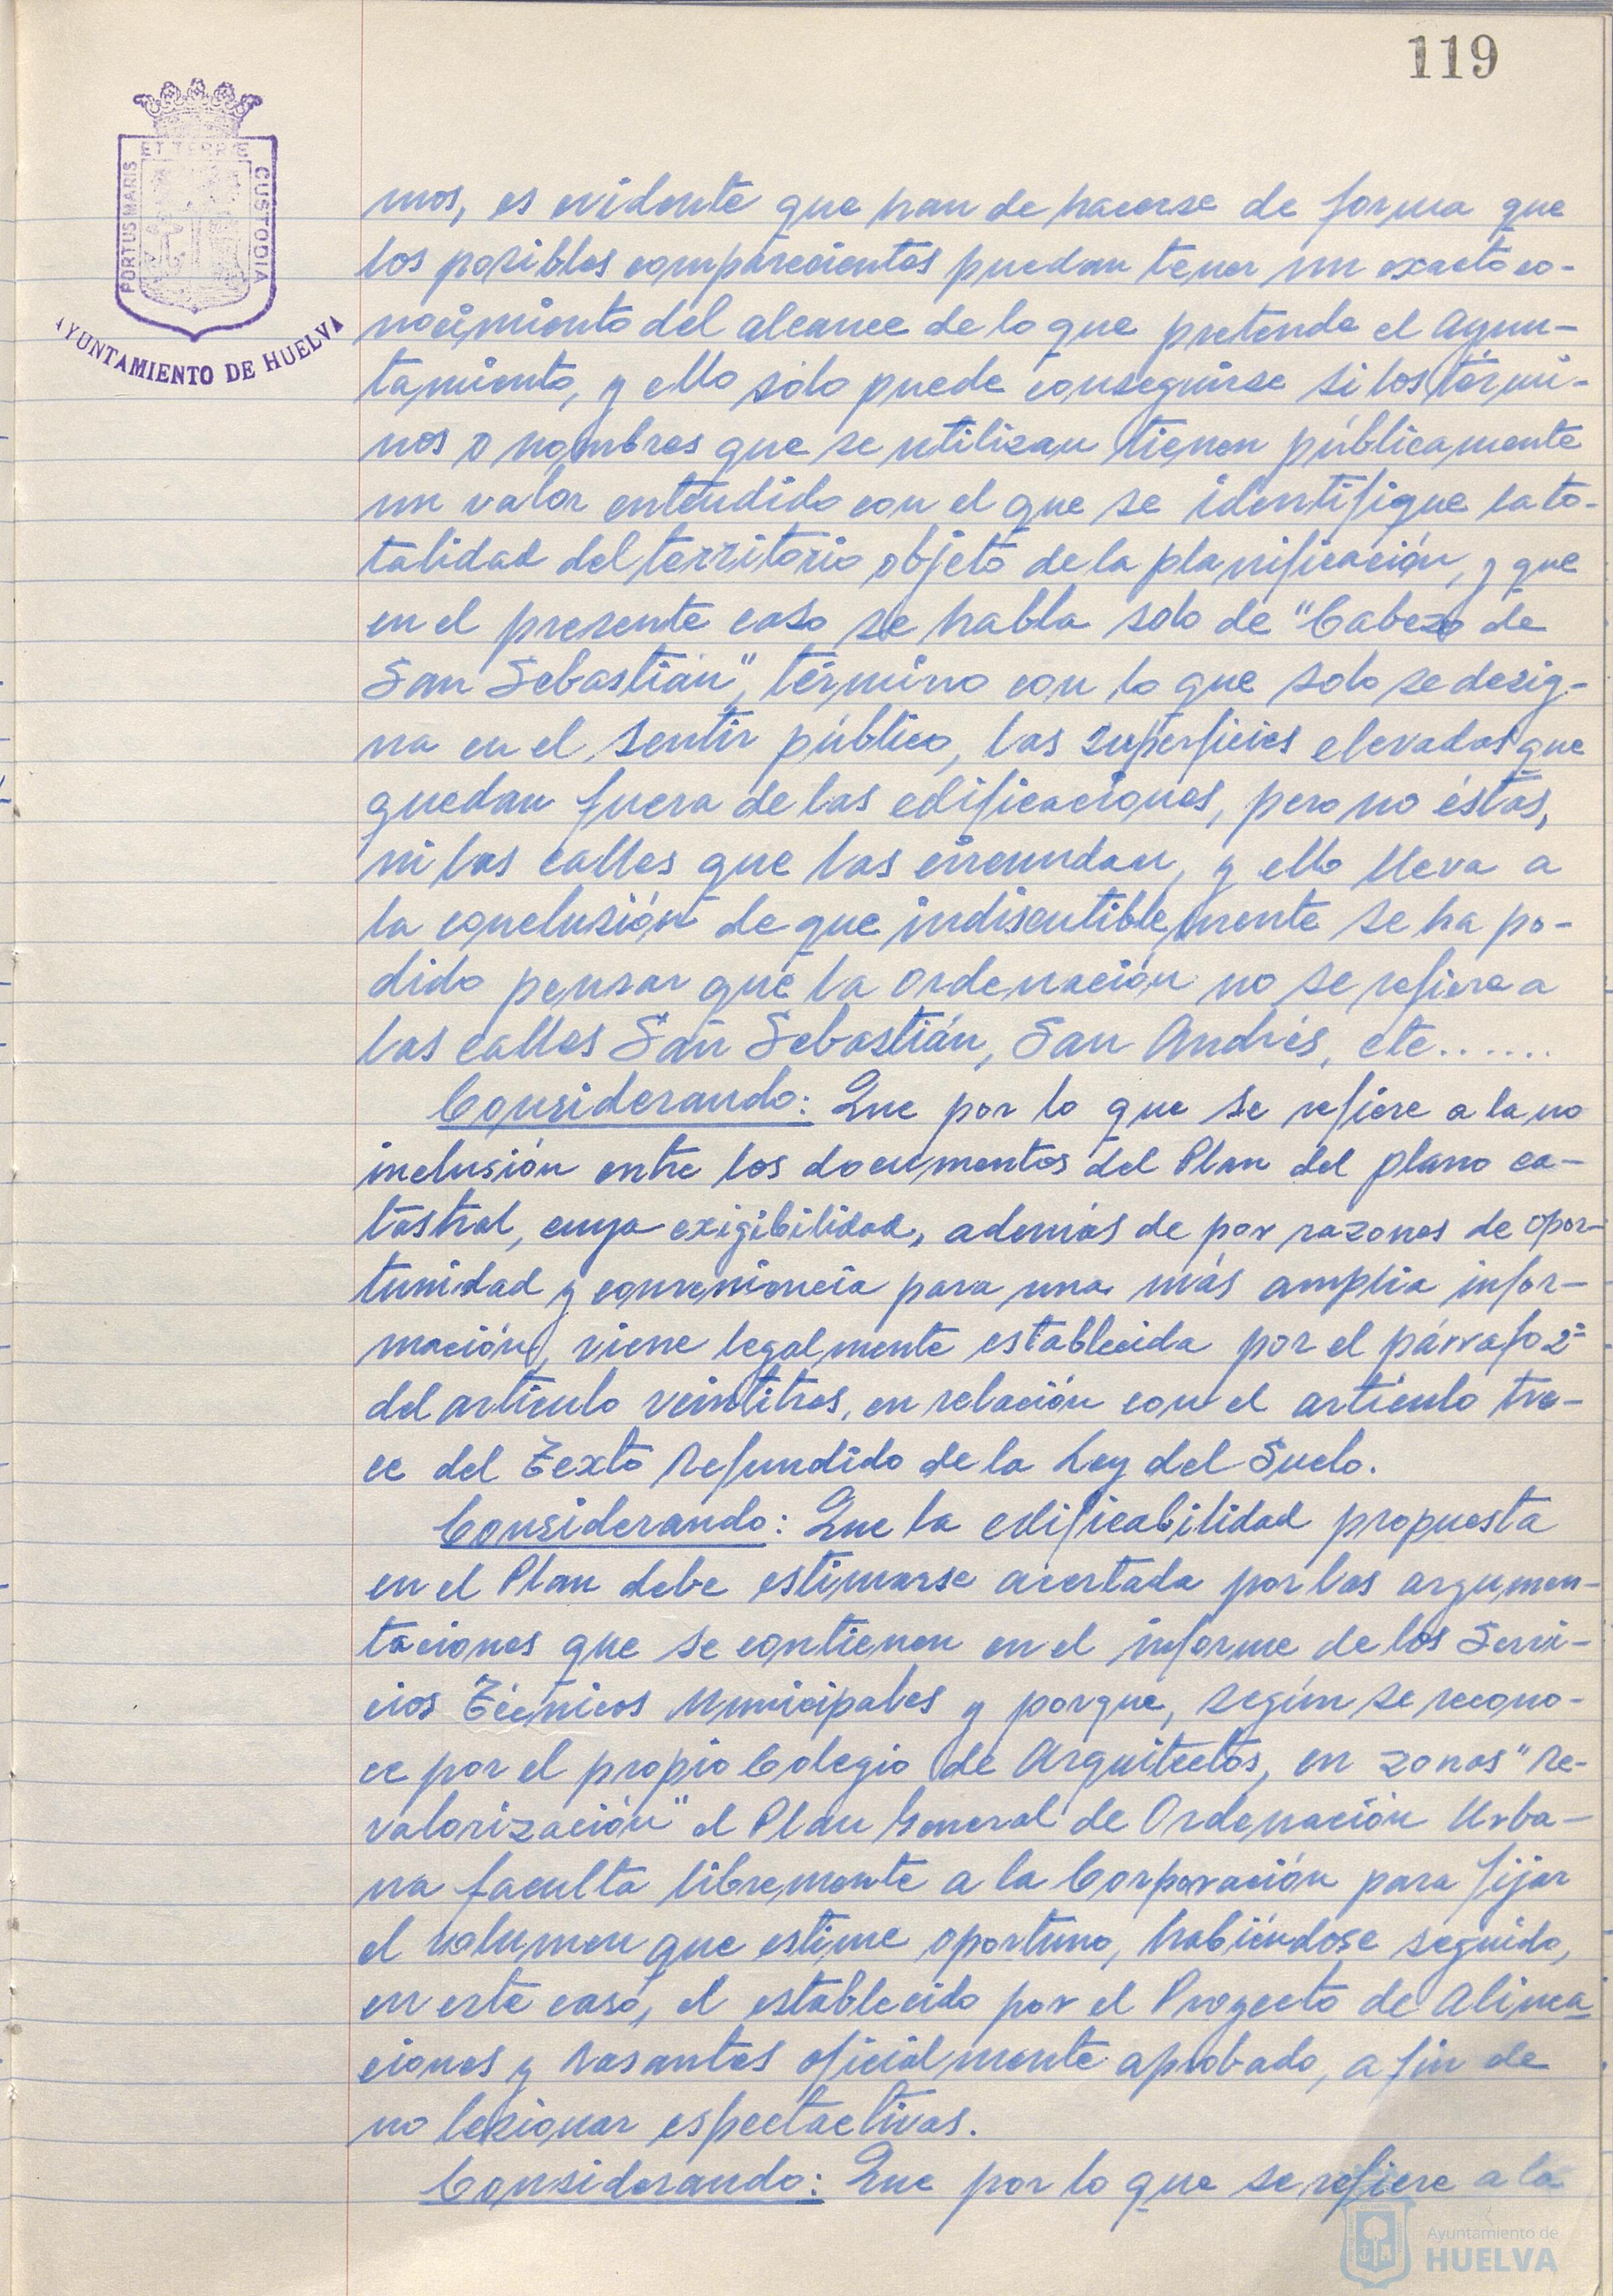 119
ET TERRE
PORTUS MARIS
CUSTODIA
AYUNTAMIENTO DE HUELVA
mos, es evidente que han de hacerse de forma que
los posibles comparecientes puedan tener un exacto co-
nocimiento del alcance de lo que pretende el Ayun-
tamiento, y ello solo puede conseguirse si los térmi-
nos o nombres que se utilizan tienen públicamente
un valor entendido con el que se identifique la to-
talidad del territorio objeto de la planificación, y que
en el presente caso se habla solo de "Cabezo de
San Sebastián", término con lo que solo se desig-
na en el sentir público, las superficies elevadas que
quedan fuera de las edificaciones, pero no éstas,
ni las calles que las circundan, y ello lleva a
la conclusión de que indiscutiblemente se ha po-
dido pensar que la Ordenación no se refiere a
las calles San Sebastián, San Andrés, etc......
Considerando: Que por lo que se refiere a la no
inclusión entre los documentos del Plan del plano ca-
tastral, cuya exigibilidad, además de por razones de opor-
tunidad y conveniencia para una más amplia infor-
mación, viene legalmente establecida por el párrafo 2º
del artículo veintitres, en relación con el artículo tre-
ce del Texto Refundido de la Ley del Suelo.
Considerando: Que la edificabilidad propuesta
en el Plan debe estimarse acertada por las argumen-
taciones que se contienen en el informe de los Servi-
cios Técnicos Municipales y porque, según se recono-
ce por el propio Colegio de Arquitectos, en zonas "Re-
valorización" el Plan General de Ordenación Urba-
na faculta libremente a la Corporación para fijar
el volumen que estime oportuno, habiéndose seguido,
en este caso, el establecido por el Proyecto de Alinea-
ciones y Rasantes oficialmente aprobado, a fin de
no lesionar espectactivas.
Considerando: Que por lo que se refiere a la
Ayuntamiento de
HUELVA